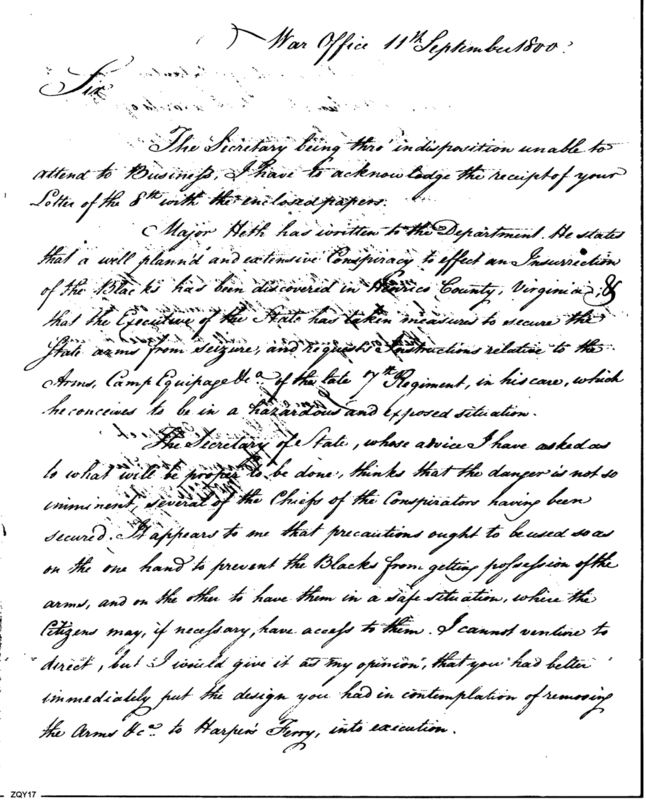 War Office 11th September 1800.
Sir
The Secretary being thro' indisposition unable to
attend to Business, I have to acknowledge the receipt of your
Letter of the 8th with the enclosed papers.
Major Heth has written to the Department. He states
that a well plann'd and extensive Conspiracy to effect an Insurrection
of the Blacks has been discovered in Henrico County, Virginia, &
that the Executive of the State has taken measures to secure the
State arms from seizure, and requests Instructions relative to the
Arms, Camp Equipage &ca of the late 7th Regiment, in his care, which
he conceives to be in a hazardous and exposed situation.
The Secretary of State, whose advice I have asked as
to what will be proper to be done, thinks that the danger is not so
imminent, several of the Chiefs of the Conspirators having been
secured. It appears to me that precautions ought to be used so as
on the one hand to prevent the Blacks from getting possession of the
arms, and on the other to have them in a safe situation, where the
Citizens may, if necessary, have access to them. I cannot venture to
direct, but I would give it as my opinion, that you had better
immediately put the design you had in contemplation of removing
the Arms &ca to Harper's Ferry, into execution.
ZQY17